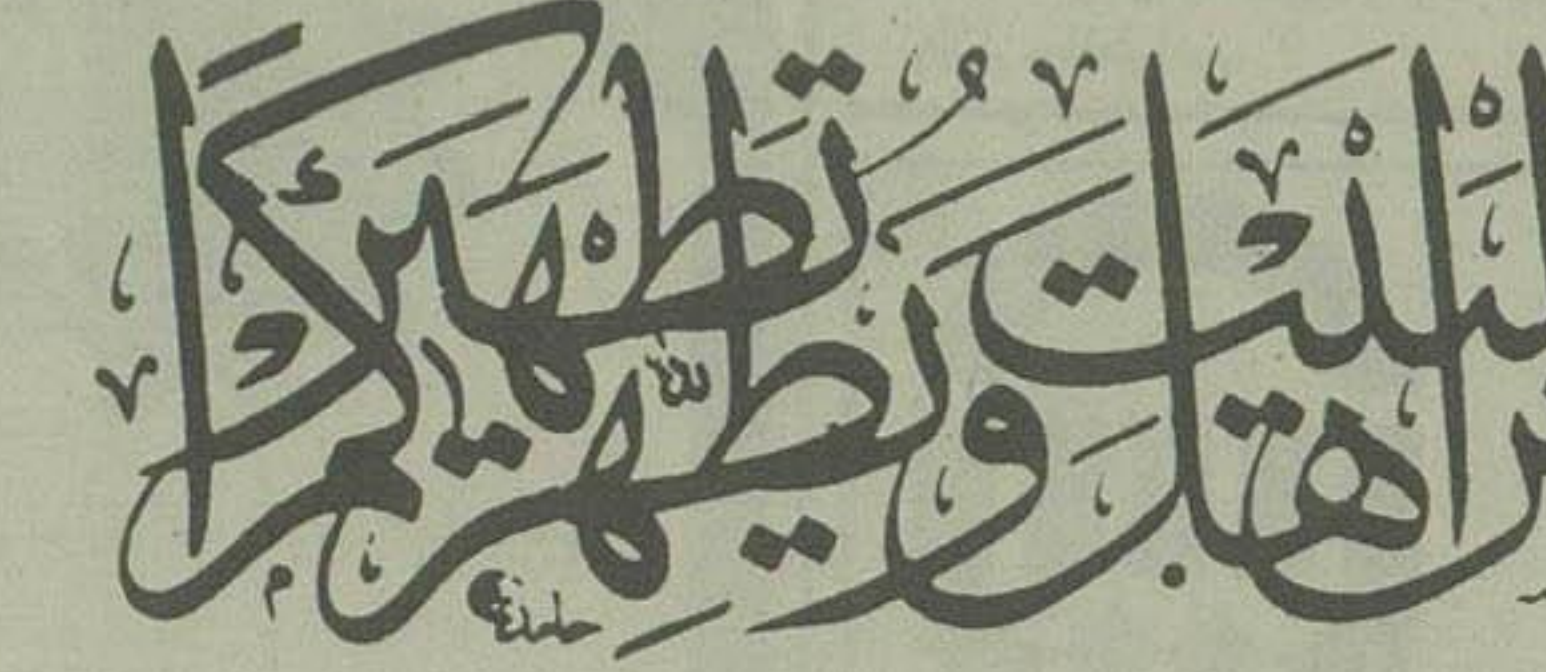 اهل البيت ويطهركم تطهيرا